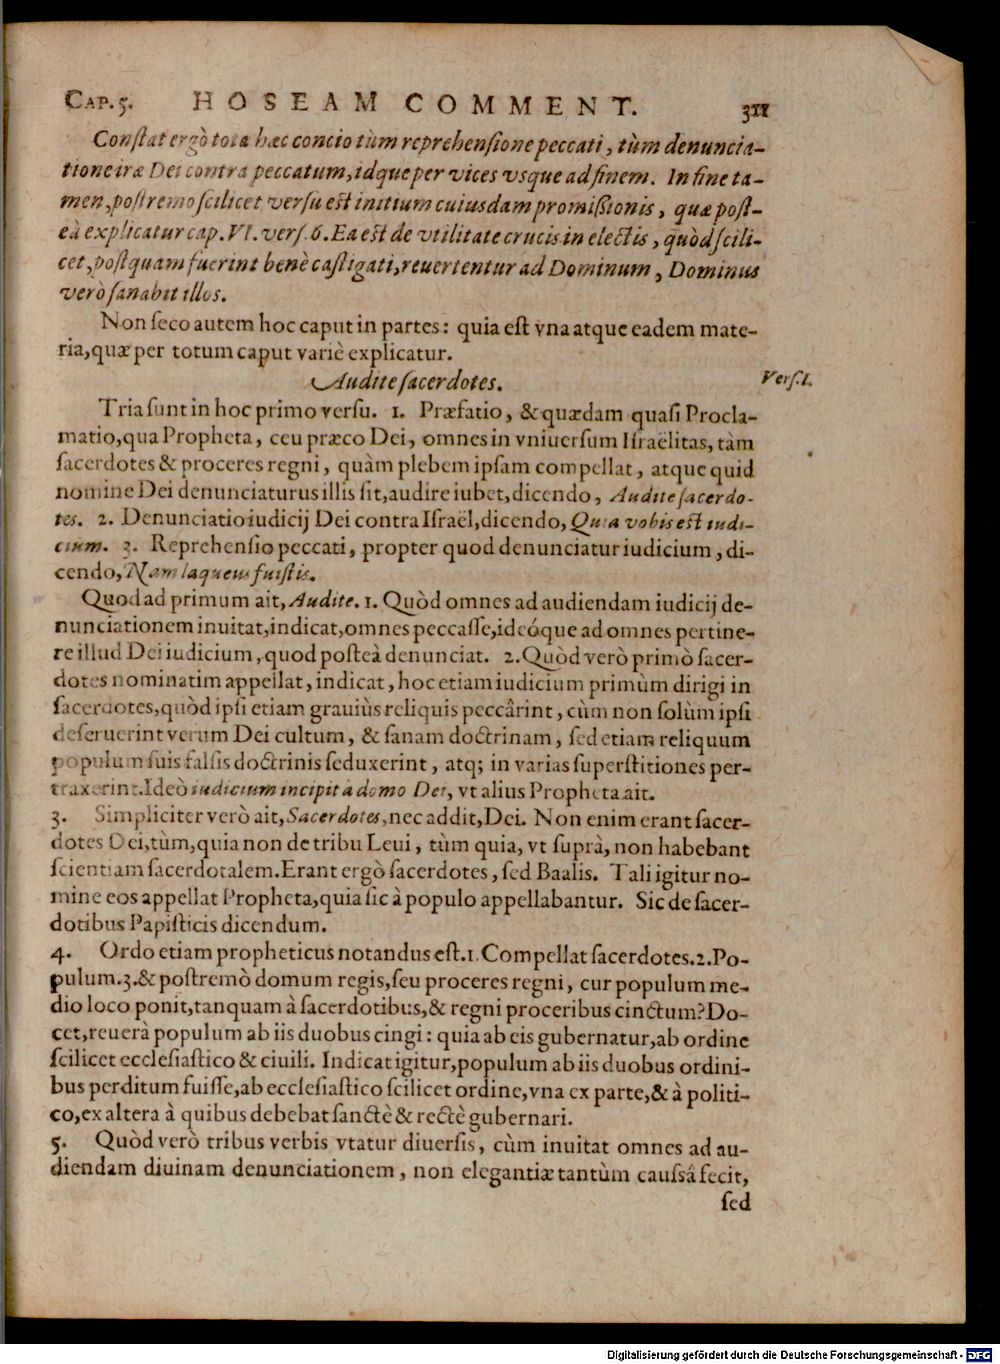 CAP. 5. HOSEAM COMMENT. 311
Conſtat ergò tota hæc concio tùm reprehenſione peccati, tùm denuncia-
tione iræ Dei contra peccatum, idque per vices vsque ad finem. In fine ta-
men, poſtremo ſcilicet verſu eſt initium cuiusdam promißionis, quæ poſt-
eà explicatur cap. VI. verſ. 6. Ea eſt de vtilitate crucis in electis, quòd ſcili-
cet, poſtquam fuerint benè caſtigati, reuertentur ad Dominum, Dominus
verò ſanabit illos.
Non ſeco autem hoc caput in partes: quia eſt vna atque eadem mate-
ria, quæ per totum caput variè explicatur.
Audite ſacerdotes. Verſ. 1.
Tria ſunt in hoc primo verſu. 1. Præfatio, & quædam quaſi Procla-
matio, qua Propheta, ceu præco Dei, omnes in vniuerſum Iſraëlitas, tàm
ſacerdotes & proceres regni, quàm plebem ipſam compellat, atque quid
nomine Dei denunciaturus illis ſit, audire iubet, dicendo, Audite ſacerdo-
tes. 2. Denunciatio iudicij Dei contra Iſraël, dicendo, Quia vobis eſt iudi-
cium. 3. Reprehenſio peccati, propter quod denunciatur iudicium, di-
cendo, Nam laqueus fuiſtis.
Quod ad primum ait, Audite. 1. Quòd omnes ad audiendam iudicij de-
nunciationem inuitat, indicat, omnes peccaſſe, ideóque ad omnes pertine-
re illud Dei iudicium, quod poſteà denunciat. 2. Quòd verò primò ſacer-
dotes nominatim appellat, indicat, hoc etiam iudicium primùm dirigi in
ſacerdotes, quòd ipſi etiam grauiùs reliquis peccârint, cùm non ſolùm ipſi
deſeruerint verum Dei cultum, & ſanam doctrinam, ſed etiam reliquum
populum ſuis falſis doctrinis ſeduxerint, atq; in varias ſuperſtitiones per-
traxerint. Ideò iudicium incipit à domo Dei, vt alius Propheta ait.
3. Simpliciter verò ait, Sacerdotes, nec addit, Dei. Non enim erant ſacer-
dotes Dei, tùm, quia non de tribu Leui, tùm quia, vt ſuprà, non habebant
ſcientiam ſacerdotalem. Erant ergò ſacerdotes, ſed Baalis. Tali igitur no-
mine eos appellat Propheta, quia ſic à populo appellabantur. Sic de ſacer-
dotibus Papiſticis dicendum.
4. Ordo etiam propheticus notandus eſt. 1. Compellat ſacerdotes. 2. Po-
pulum. 3. & poſtremò domum regis, ſeu proceres regni, cur populum me-
dio loco ponit, tanquam à ſacerdotibus, & regni proceribus cinctum? Do-
cet, reuerà populum ab iis duobus cingi: quia ab eis gubernatur, ab ordine
ſcilicet eccleſiaſtico & ciuili. Indicat igitur, populum ab iis duobus ordini-
bus perditum fuiſſe, ab eccleſiaſtico ſcilicet ordine, vna ex parte, & à politi-
co, ex altera à quibus debebat ſanctè & rectè gubernari.
5. Quòd verò tribus verbis vtatur diuerſis, cùm inuitat omnes ad au-
diendam diuinam denunciationem, non elegantiæ tantùm cauſſâ fecit,
ſed
Digitalisierung gefördert durch die Deutsche Forschungsgemeinschaft - DFG